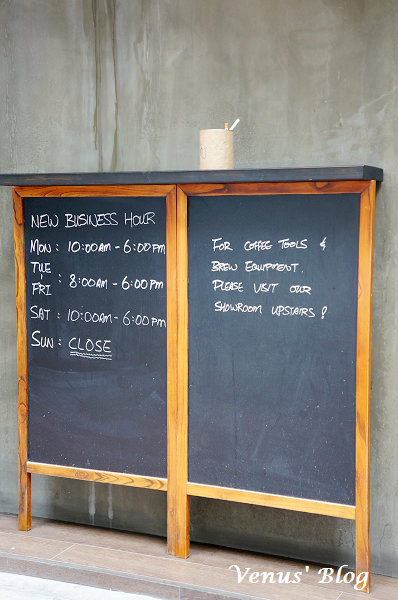 NEW BUSINESS HOUR
MON : 10:00AM - 6:00PM
TUE
FRI : 8:00AM - 6:00PM
SAT : 10:00AM - 6:00PM
SUN : CLOSE
FOR COFFEE TOOLS &
BREW EQUIPMENT.
PLEASE VISIT OUR
SHOWROOM UPSTAIRS !
Venus' Blog